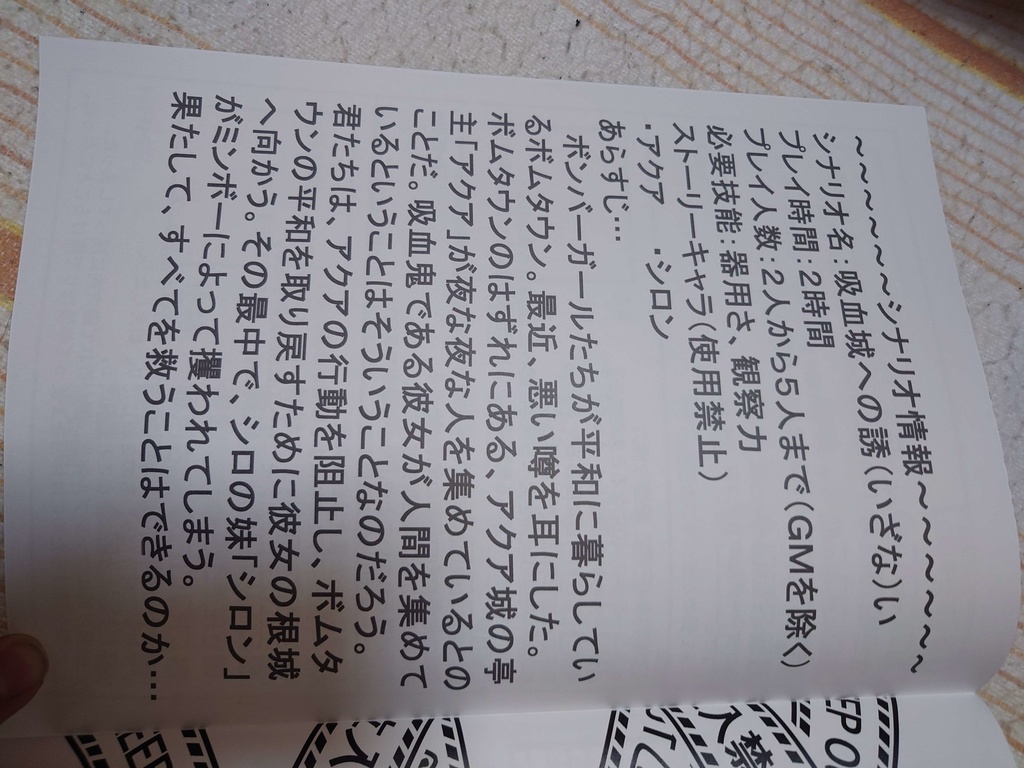 ～～～～～シナリオ情報～～～～～～
シナリオ名：吸血城への誘（いざな）い
プレイ時間：２時間
プレイ人数：２人から５人まで（GMを除く）
必要技能：器用さ、観察力
ストーリーキャラ（使用禁止）
・アクア　・シロン
あらすじ…
　ボンバーガールたちが平和に暮らしてい
るボムタウン。最近、悪い噂を耳にした。
ボムタウンのはずれにある、アクア城の亭
主「アクア」が夜な夜な人を集めているとの
ことだ。吸血鬼である彼女が人間を集めて
いるということはそういうことなのだろう。
君たちは、アクアの行動を阻止し、ボムタ
ウンの平和を取り戻すために彼女の根城
へ向かう。その最中で、シロの妹「シロン」
がミンボーによって攫われてしまう。
果たして、すべてを救うことはできるのか…
EP O
入禁